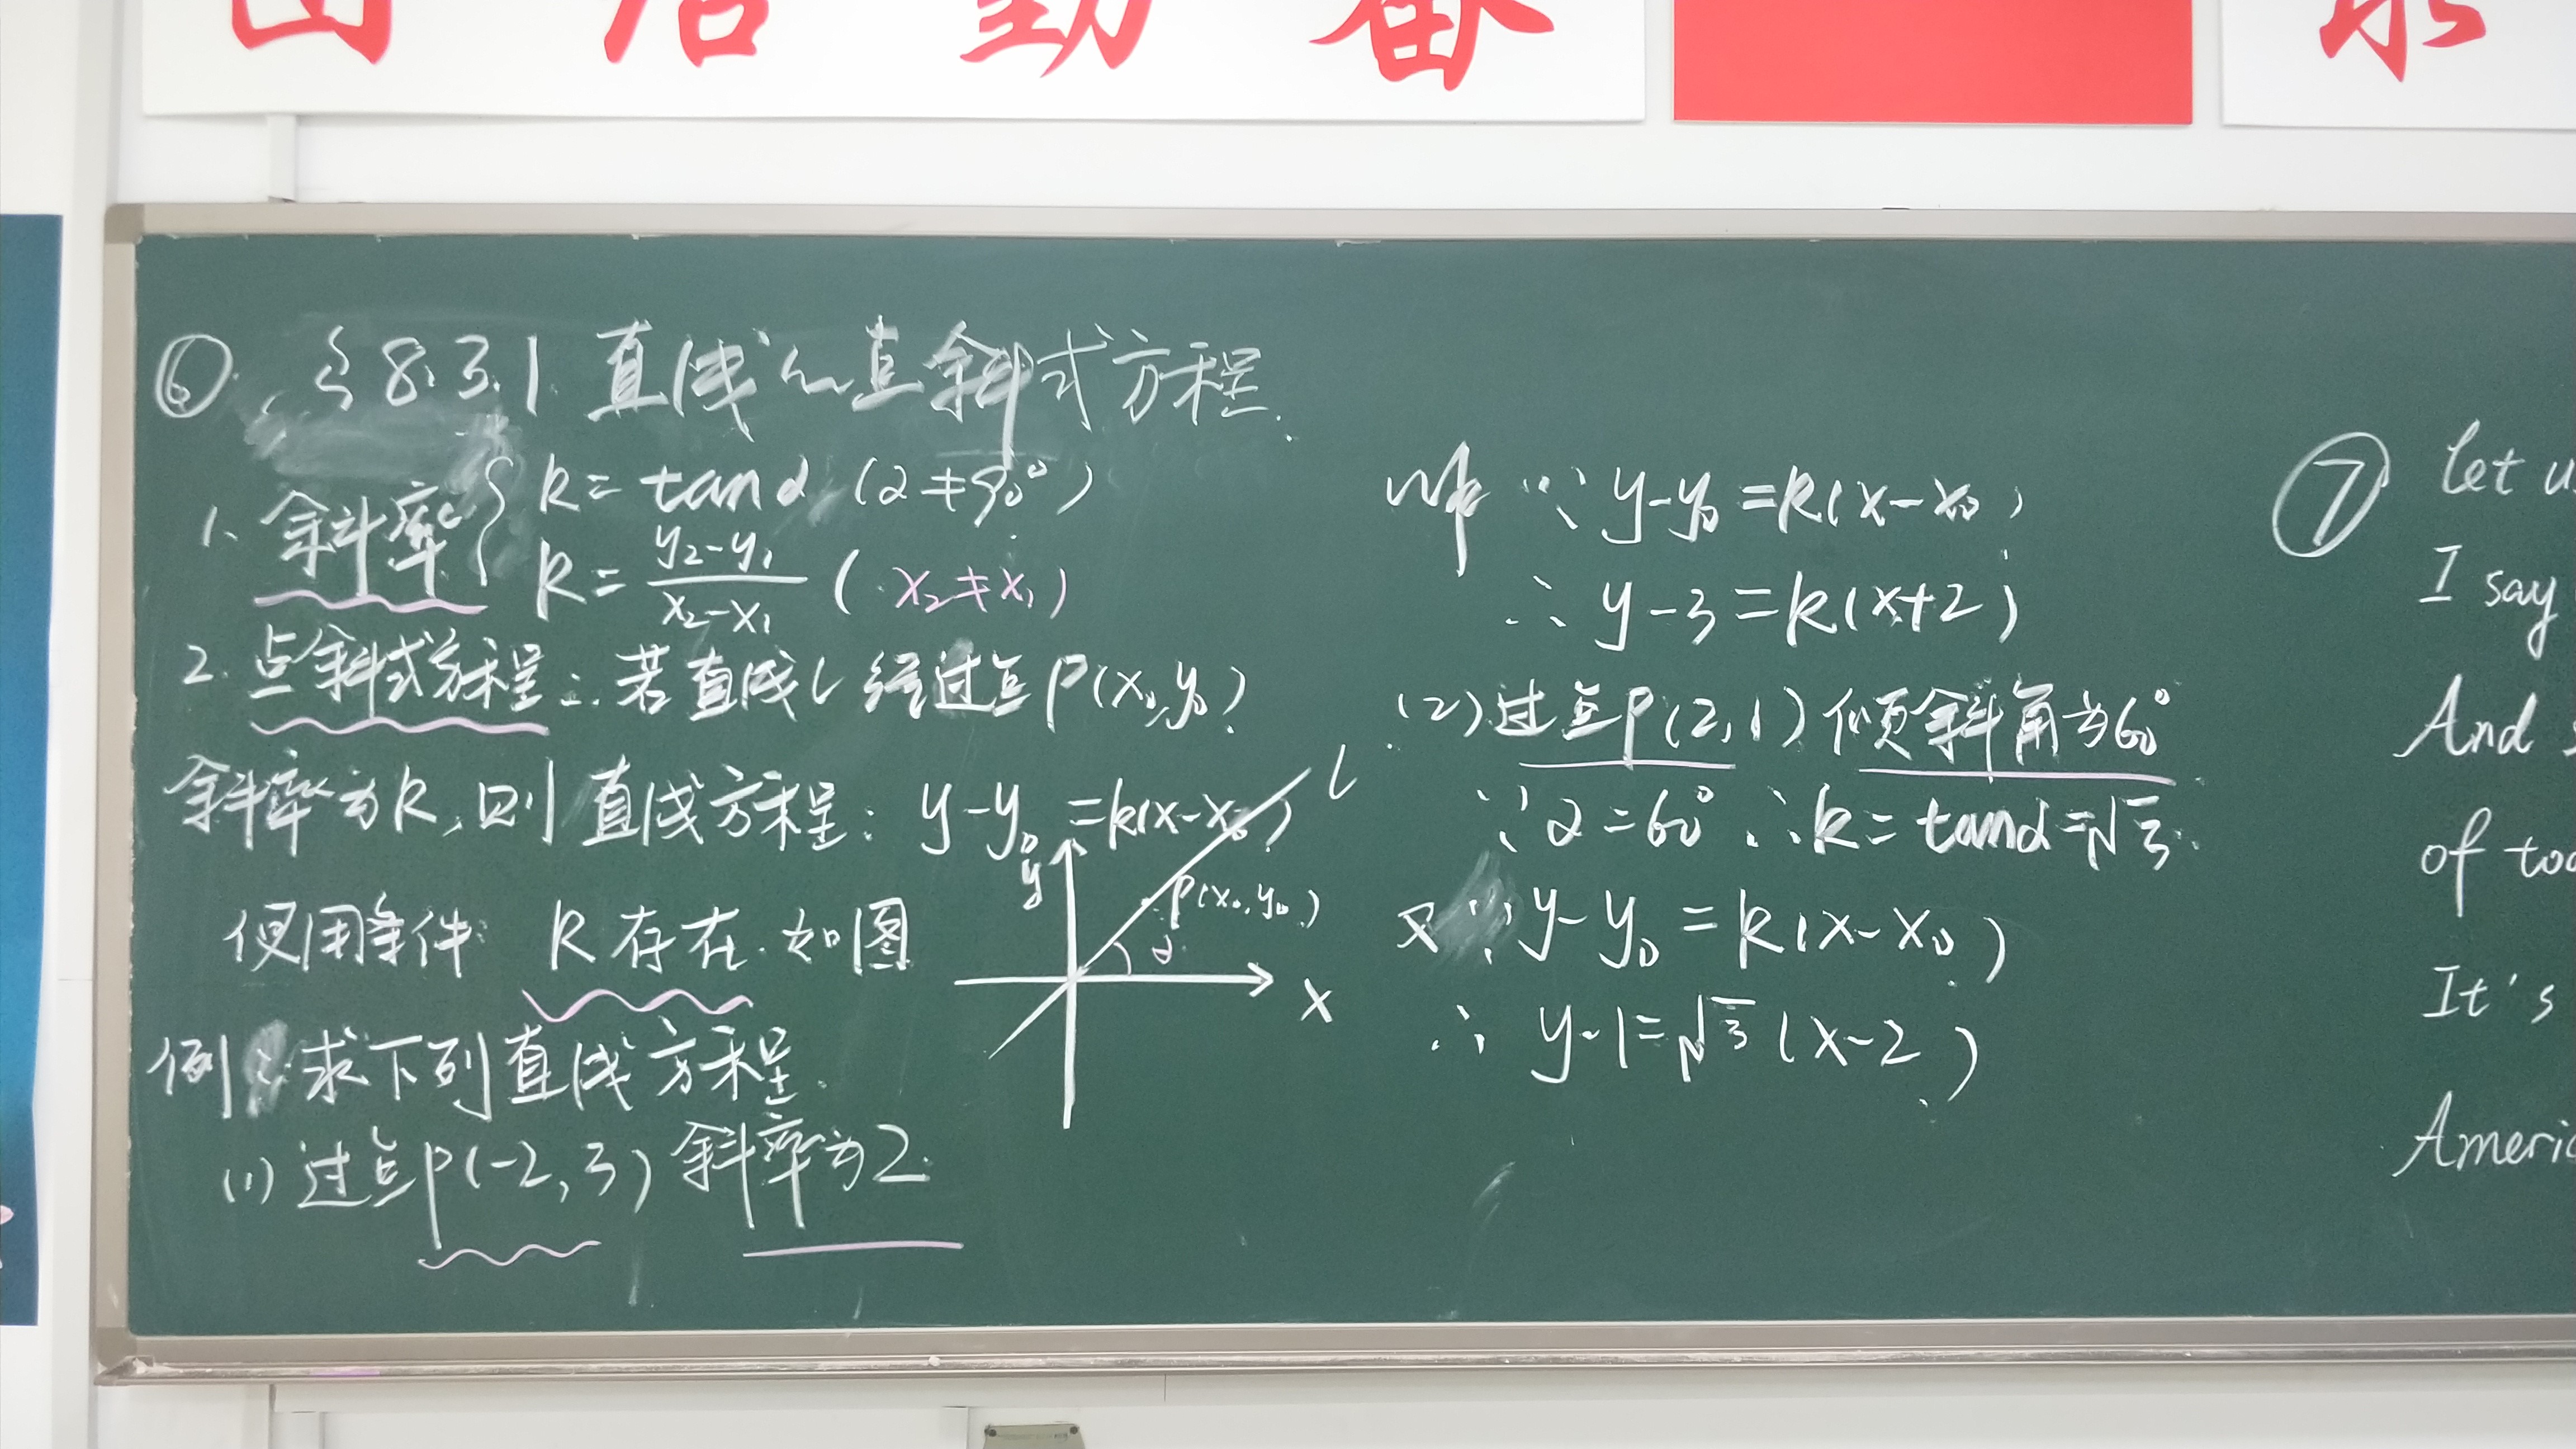 ⑥ §8.3.1 直线的点斜式方程.
1、斜斜率 { k = tanα (α ≠ 90°)
k = (y₂-y₁)/(x₂-x₁) ( x₂≠x₁)
2. 点斜式方程: 若直线l经过点P(x₀,y₀)
斜率为k,则直线方程: y-y₀=k(x-x₀)
使用条件: k存在.如图
l
y
P(x₀,y₀)
α
x
例: 求下列直线方程.
(1) 过点P(-2,3) 斜率为2.
∵ y-y₀=k(x-x₀)
∴ y-3=k(x+2)
(2) 过点P(2,1) 倾斜角为60°
∵ α=60° ∴ k=tanα=√3.
又∵ y-y₀=k(x-x₀)
∴ y-1=√3(x-2)
⑦ let u
I say
And
of too
It's
Americ